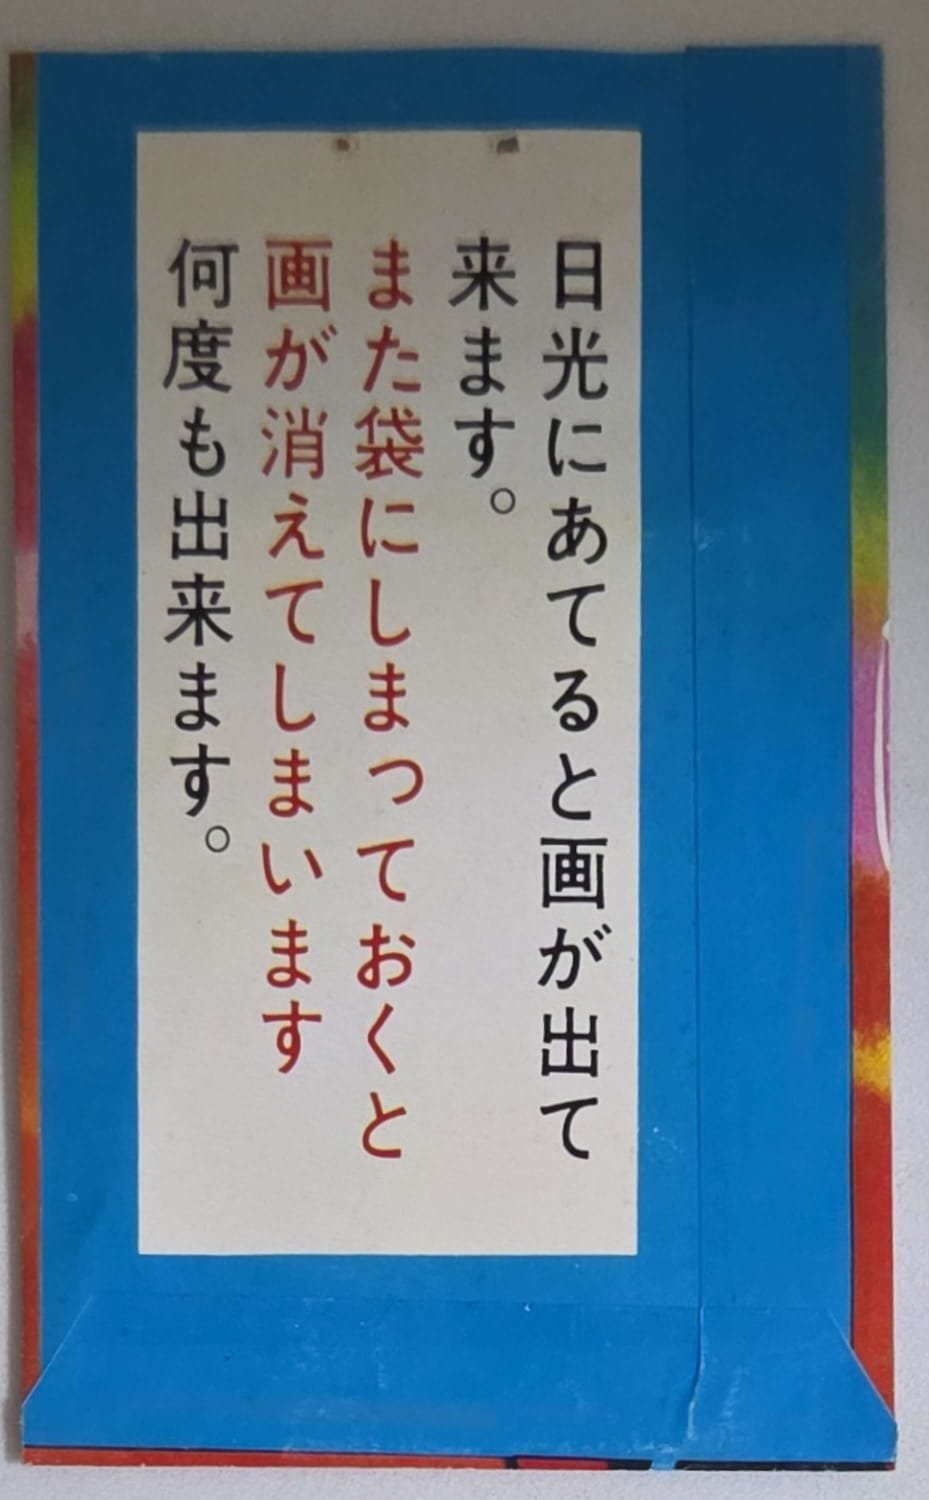 日光にあてると画が出て
来ます。
また袋にしまつておくと
画が消えてしまいます
何度も出来ます。